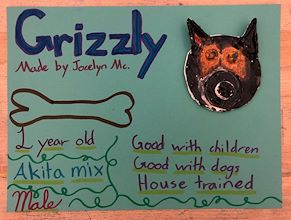 Grizzly
Made by Jocelyn Mc.
1 year old
Akita mix
Male
Good with children
Good with dogs
House trained